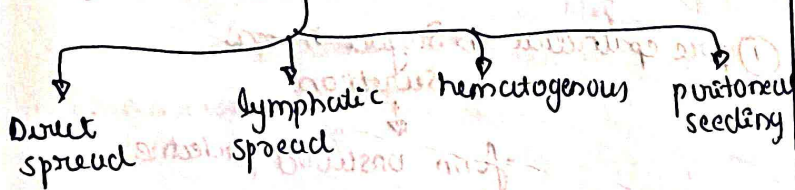 Direct
spread
lymphatic
spread
hematogenous
puritoneal
seeding